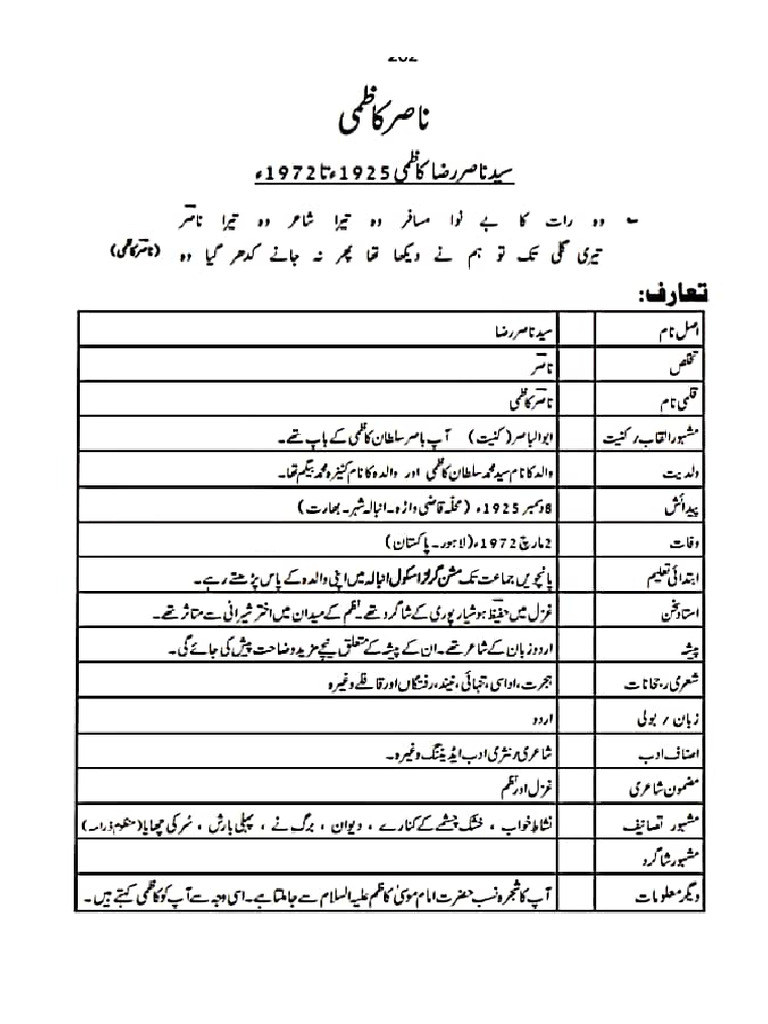 202
ناصر کاظمی
سید ناصر رضا کاظمی 1925ء تا 1972ء
وہ رات کا بے نوا مسافر وہ تیرا شاعر وہ تیرا ناصرؔ
تیری گلی تک تو ہم نے دیکھا تھا پھر نہ جانے کدھر گیا وہ (ناصرؔ کاظمی)
تعارف:
اصل نام سید ناصر رضا
تخلص ناصرؔ
قلمی نام ناصرؔ کاظمی
مشہور القاب / کنیت ابو الباصر (کنیت) آپ باصر سلطان کاظمی کے باپ تھے۔
ولدیت والد کا نام سید محمد سلطان کاظمی اور والدہ کا نام کنیزہ محمد بیگم تھا۔
پیدائش 8 دسمبر 1925ء (محلّہ قاضی واڑہ۔ انبالہ شہر۔ بھارت)
وفات 2 مارچ 1972ء (لاہور۔ پاکستان)
ابتدائی تعلیم پانچویں جماعت تک مشن گرلز اسکول انبالہ میں اپنی والدہ کے پاس پڑھتے رہے۔
استاد سخن غزل میں حفیظؔ ہوشیار پوری کے شاگرد تھے۔ نظم کے میدان میں اختر شیرانی سے متاثر تھے۔
پیشہ اردو زبان کے شاعر تھے۔ ان کے پیشہ کے متعلق نیچے مزید وضاحت پیش کی جائے گی۔
شعری رجحانات ہجرت، اداسی، تنہائی، نیند، رفتگاں اور قافلے وغیرہ
زبان / بولی اردو
اصناف ادب شاعری / نثری ادب ایڈیٹنگ وغیرہ۔
مضمون شاعری غزل اور نظم
مشہور تصانیف نشاط خواب ، خشک چشمے کے کنارے ، دیوان ، برگ نے ، پہلی بارش ، سُر کی چھایا (منظوم ڈرامہ)
مشہور شاگرد
دیگر معلومات آپ کا شجرہ نسب حضرت امام موسیٰ کاظم علیہ السلام سے جا ملتا ہے۔ اسی وجہ سے آپ کو کاظمی کہتے ہیں۔